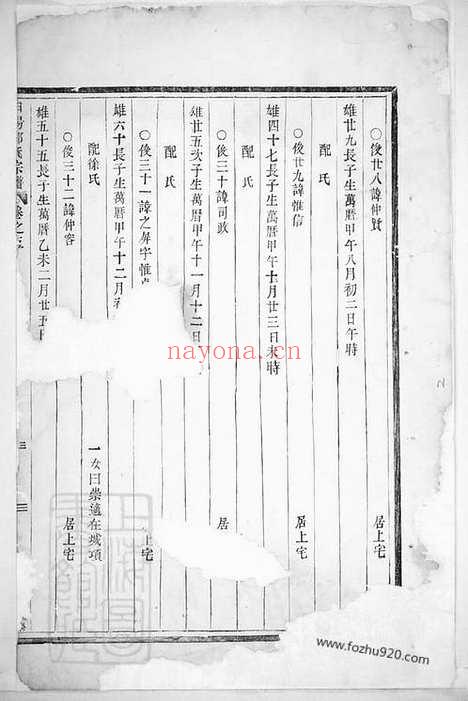 〇俊廿八諱仲賢 居上宅
雄廿九長子生萬曆甲午八月初二日午時
配氏
〇俊廿九諱惟信 居上宅
雄四十七長子生萬曆甲午十月廿三日未時
配氏
〇俊三十諱司政 居
雄廿五次子生萬曆甲午十一月十二日
配氏
〇俊三十一諱之屏字惟 上宅
雄六十長子生萬曆甲午十二月
配徐氏 一女曰崇適在城項
〇俊三十二諱仲容 居上宅
雄五十五長子生萬曆乙未二月廿五
氏宗譜 卷之 三
nayona.cn
www.fozhu920.com
2